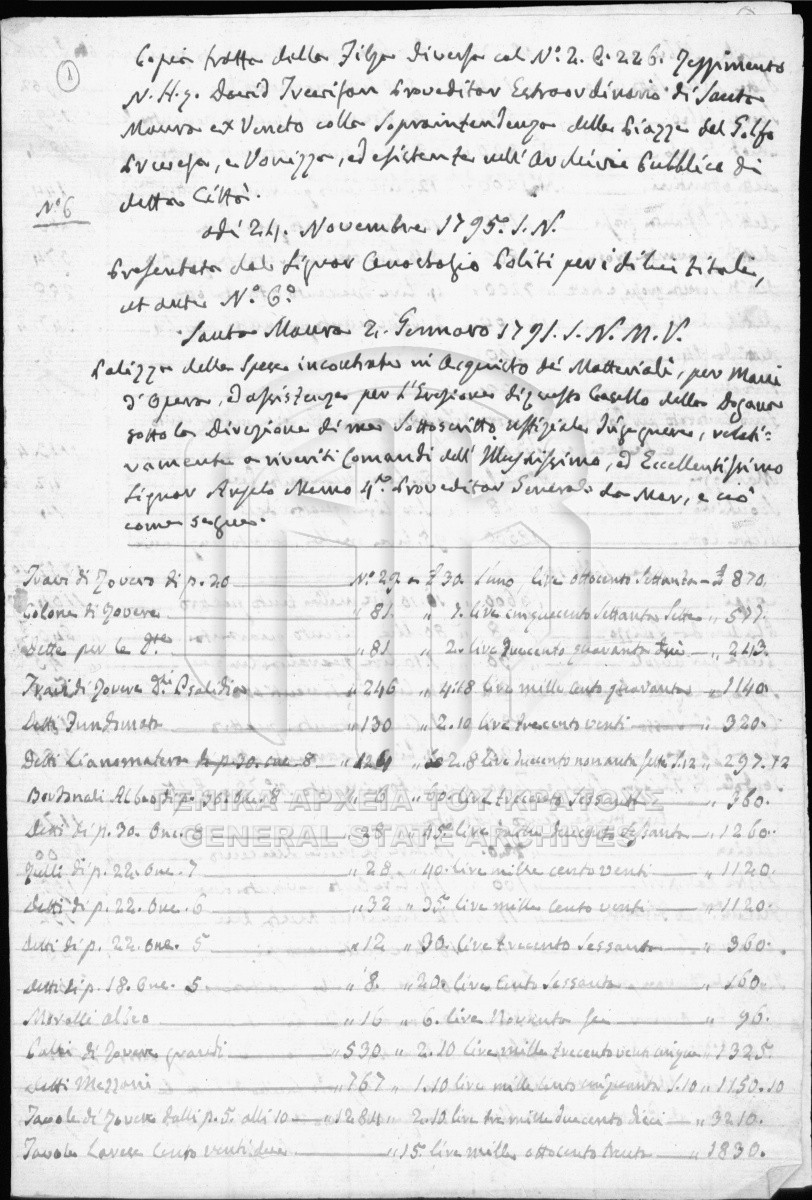 1
Copia tratta dalla Filza Diversa col N.° 2. C. 226. Reggimento
N. H. g. David Trevisan Proveditor Estraordinario di Santa
Maura ex Veneto colla Sopraintendenza della Piazza del Golfo
Prevesa, e Vonizza, ed esistente nell' Archivio Pubblico di
detta Città.
N.° 6
adi 24. Novembre 1795. S. N.
Presentata dal Signor Politi per i di lui titoli,
N.° 6.°
Santa Maura 2. Gennaro 1791. S. N. M. V.
Polizza della Spesa incontrata in Acquisto de' Matteriali, per Mani
d'Opera, ed assistenza per l'Erezione di questo Casello della Dogana
sotto la Direzione di me Sottoscritto uffiziale Ingegnere, relati-
vamente a riveriti Comandi dell' Illustrissimo, ed Eccellentissimo
Signor Angelo Memo 4.to Proveditor General da Mar, e ciò
come segue.
Travi di Rovere di p. 20 N.° 29 a £ 30. l'uno live ottocento Settanta - £ 870.
Colone di Rovere " 81 " 7. live cinquecento Settanta Sette " 577.
Dette per le D.te " 81 " 2. live duecento quaranta tre " 243.
Travi di Rovere D.ti " 246 " 4:18 live mille cento quaranta " 1140.
Detti " 130 " 2.10 live trecento venti " 320.
Detti p. 30. onc. 8 " 124 " 2.8 live duecento nonanta sette S.12 " 297.12
Bordonali Albeo di p. 36. Onc. 8 " 6 " 60. live trecento Sessanta " 360.
ΓΕΝΙΚΑ ΑΡΧΕΙΑ ΤΟΥ ΚΡΑΤΟΥΣ
Detti di p. 30. Onc. 8 " 28 " 45. live mille duecento Sessanta " 1260.
GENERAL STATE ARCHIVES
di p. 22. Onc. 7 " 28 " 40. live mille cento venti " 1120.
Detti di p. 22. Onc. 6 " 32 " 35. live mille cento venti " 1120.
Detti di p. 22. Onc. 5 " 12 " 30. live trecento Sessanta " 360.
Detti di p. 18. Onc. 5 " 8 " 20. live Cento Sessanta " 160.
Moralli albeo " 16 " 6. live Novanta Sei " 96.
di Rovere grandi " 530 " 2.10 live mille trecento venti cinque " 1325.
Detti Mezzani " 767 " 1.10 live mille cento cinquanta S.10 " 1150.10
Tavole di Rovere dalli p. 5. alli 10 " 1284 " 2.10 live tre mille duecento dieci " 3210.
Tavole Larese Cento venti due " 15. live mille ottocento trenta " 1830.